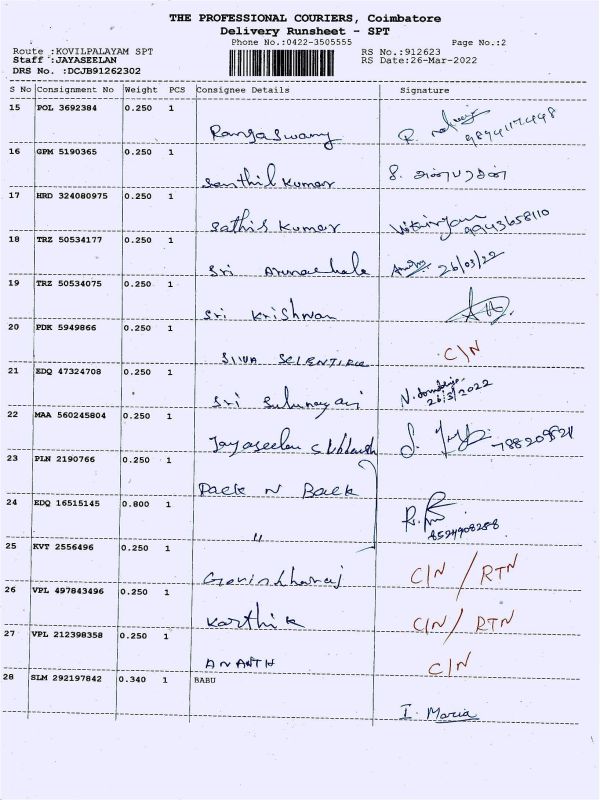 THE PROFESSIONAL COURIERS, Coimbatore
Delivery Runsheet - SPT
Phone No.:0422-3505555
Page No.:2
Route :KOVILPALAYAM SPT
RS No.:912623
Staff :JAYASEELAN
RS Date:26-Mar-2022
DRS No. :DCJB91262302
S No Consignment No Weight PCS Consignee Details Signature
15 POL 3692384 0.250 1
Rangaswamy 9894117448
16 GPM 5190365 0.250 1
Senthil Kumar
17 HRD 324080975 0.250 1
Sathis Kumar 9943658110
18 TRZ 50534177 0.250 1
Sri Arunachala 26/03/22
19 TRZ 50534075 0.250 1
Sri Krishnan
20 PDK 5949866 0.250 1
SIVA SCIENTIFIC C/N
21 EDQ 47324708 0.250 1
Sri 26/3/2022
22 MAA 560245804 0.250 1
Jayaseelan
23 PLN 2190766 0.250 1
Pack N Back
24 EDQ 16515145 0.800 1
" 8524908288
25 KVT 2556496 0.250 1
C/N / RTN
26 VPL 497843496 0.250 1
Karthik C/N / RTN
27 VPL 212398358 0.250 1
ANANTH C/N
28 SLM 292197842 0.340 1 BABU
I. Maria